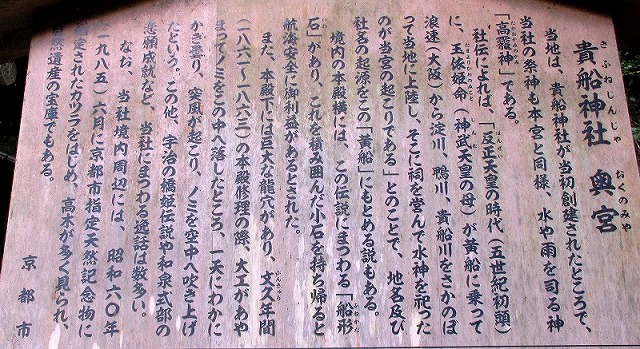 貴船神社 奥宮
きふねじんじゃ おくのみや
当地は、貴船神社が当初創建されたところで、
当社の祭神も本宮と同様、水や雨を司る神
「高龗神」である。
たかおかみのかみ
社伝によれば、「反正天皇の時代(五世紀初頭)
はんぜい
に、玉依姫命(神武天皇の母)が黄船に乗って
たまよりひめのみこと じんむ
浪速(大阪)から淀川、鴨川、貴船川をさかのぼ
って当地に上陸し、そこに祠を営んで水神を祀った
のが当宮の起こりである」とのことで、地名及び
社名の起源をこの「黄船」にもとめる説もある。
境内の本殿横には、この伝説にまつわる「船形
ふながた
石」があり、これを積み囲んだ小石を持ち帰ると
航海安全に御利益があるとされた。
また、本殿下には巨大な龍穴があり、文久年間
(一八六一~一八六三)の本殿修理の際、大工があや
まってノミをこの中へ落したところ、一天にわかに
かき曇り、突風が起こり、ノミを空中へ吹き上げ
たという。この他、宇治の橋姫伝説や和泉式部の
悲願成就など、当社にまつわる逸話は数多い。
なお、当社境内周辺には、昭和六〇年
(一九八五)六月に京都市指定天然記念物に
指定されたカツラをはじめ、高木が多く見られ、
自然遺産の宝庫でもある。
京都市